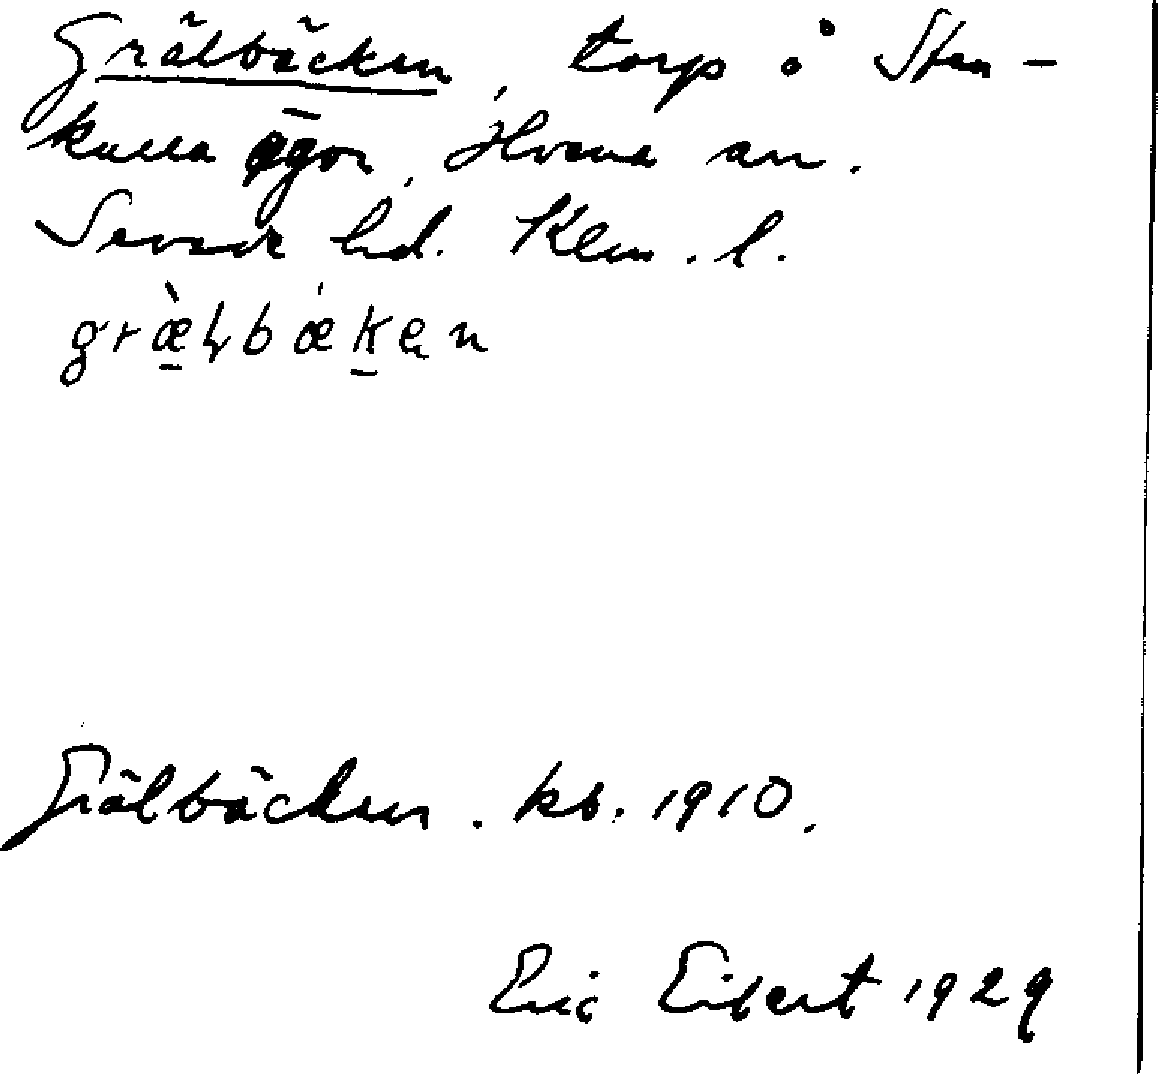 Grälbäcken, torp å Sten-
kulla ägor, Hvena sn.
Sevede hd. Klm. l.
græ̀ḷbækən
Grälbäcken. kb. 1910.
Eric Eibert 1929